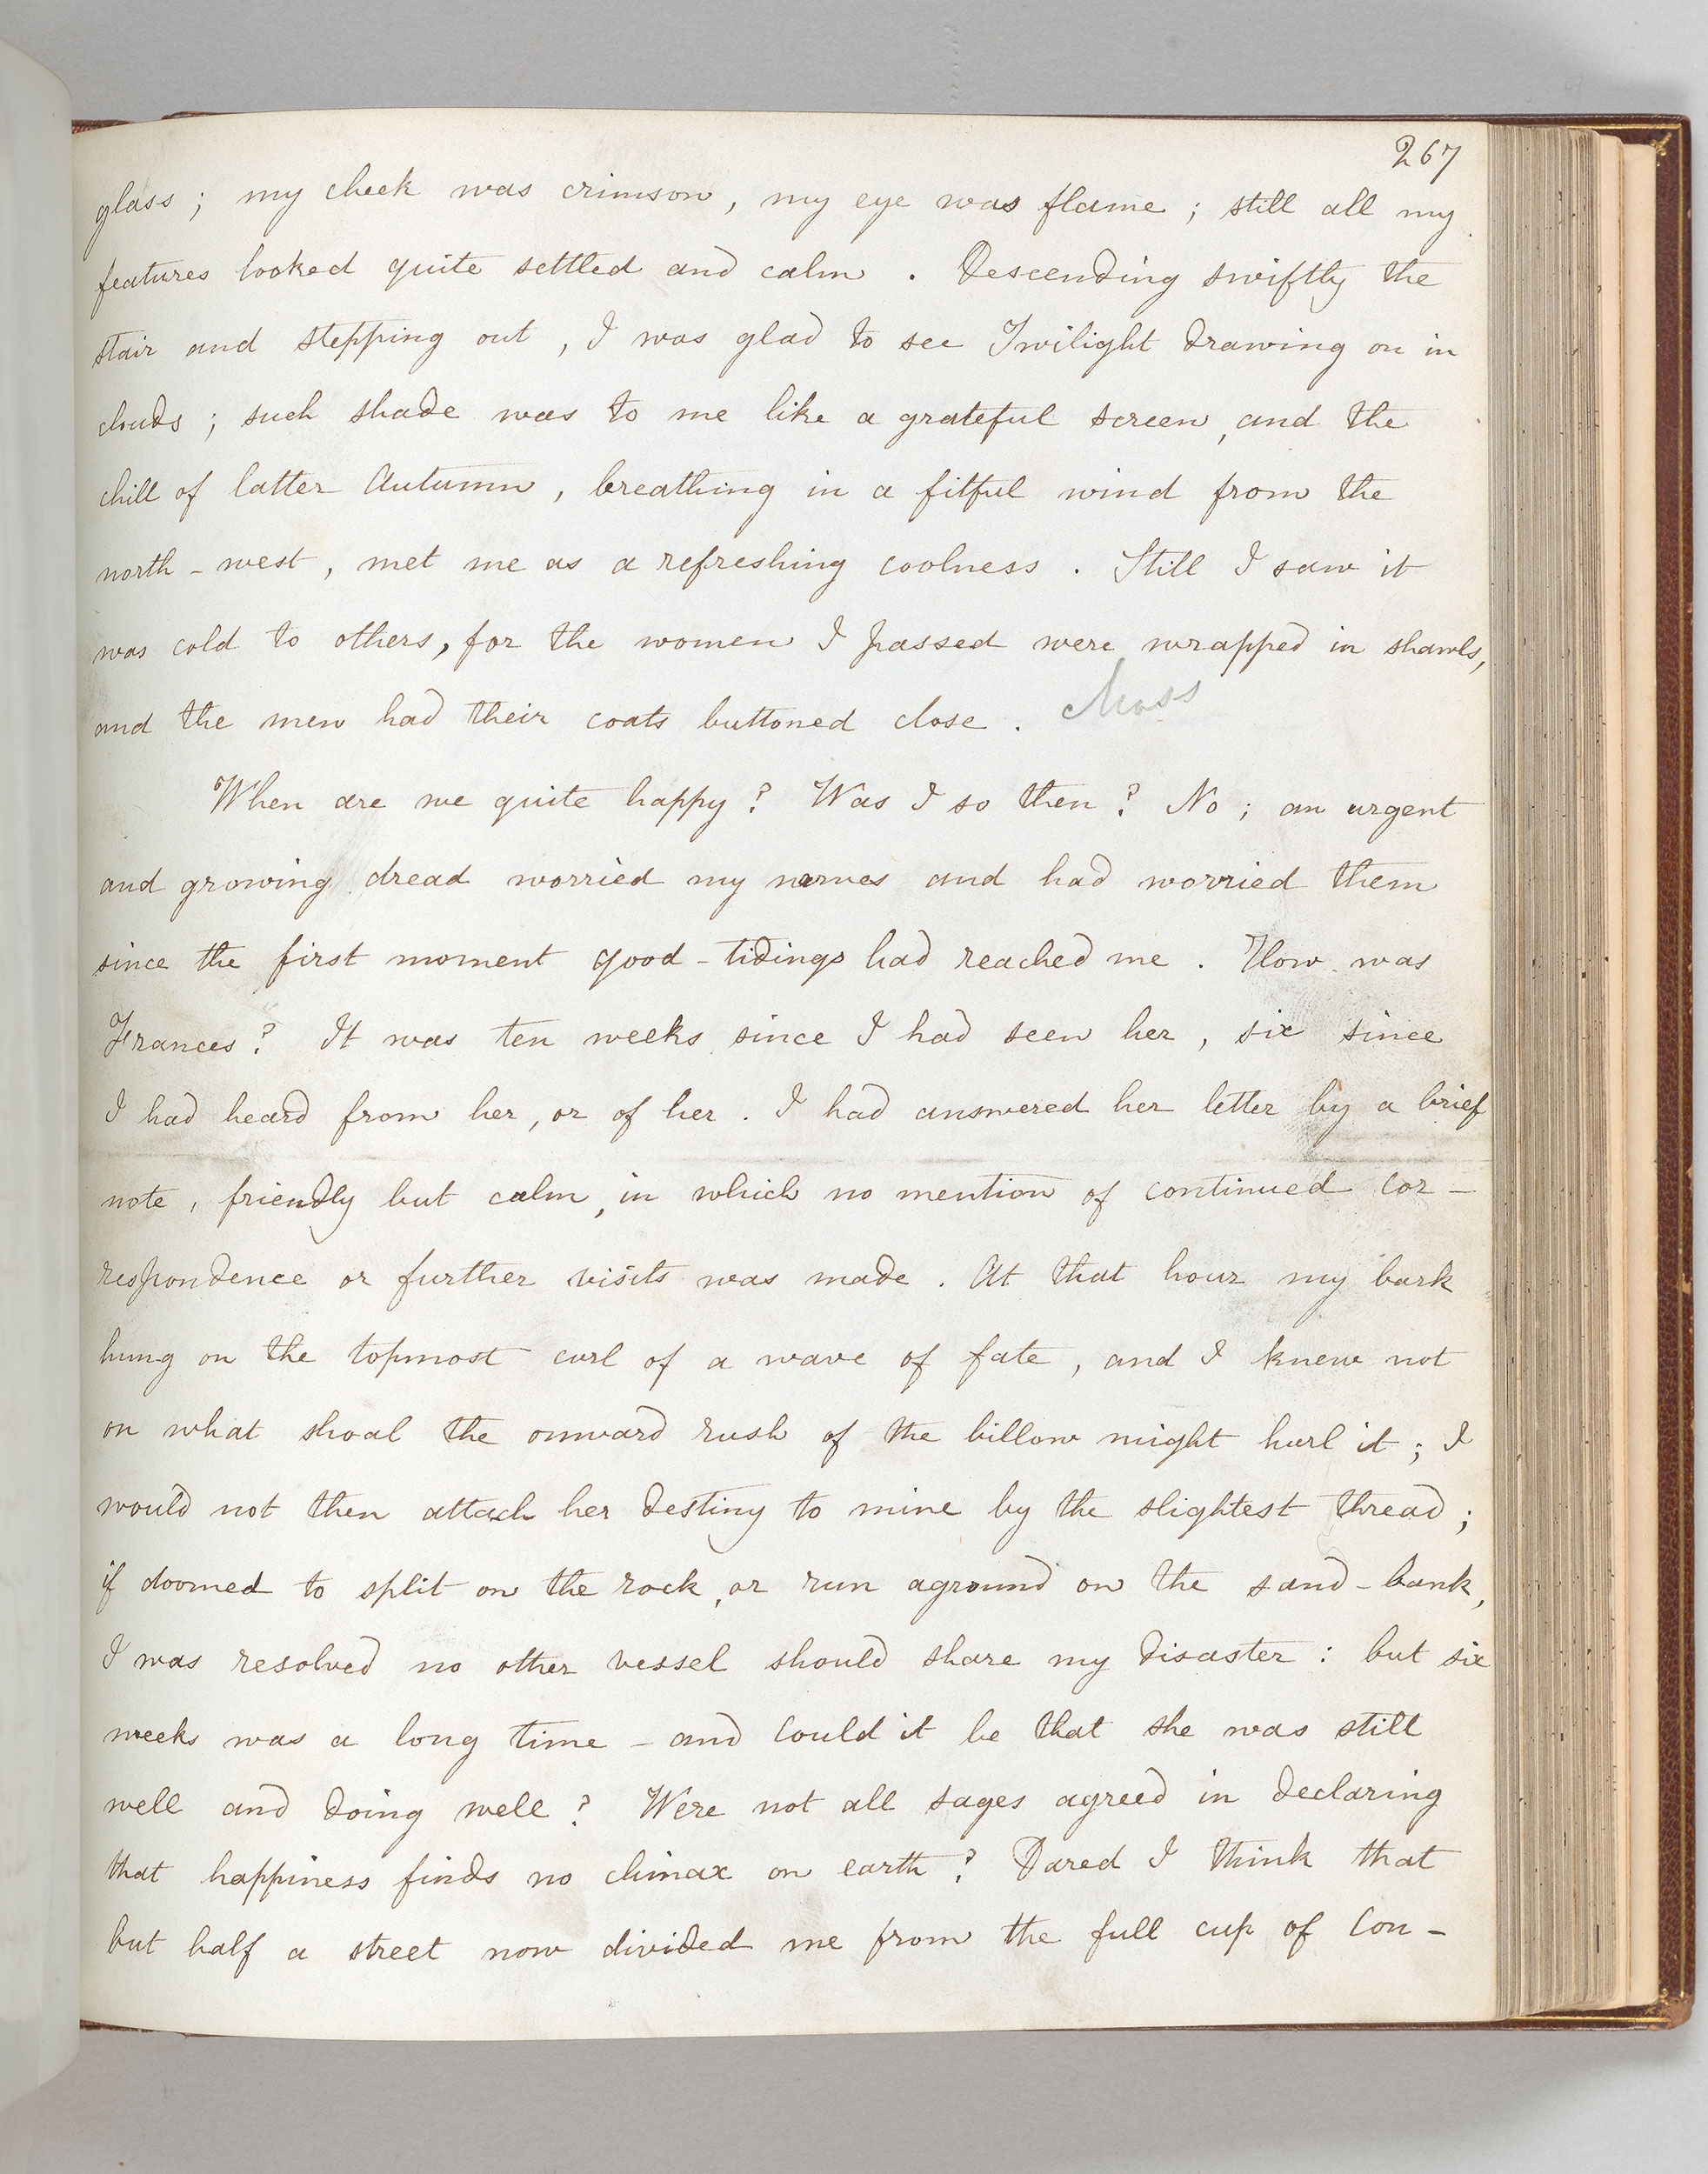 267
glass ; my cheek was crimson , my eye was flame ; still all my
features looked quite settled and calm . Descending swiftly the
stair and stepping out , I was glad to see Twilight drawing on in
clouds ; such shade was to me like a grateful screen , and the
chill of latter Autumn , breathing in a fitful wind from the
north - west , met me as a refreshing coolness . Still I saw it
was cold to others , for the women I passed were wrapped in shawls ,
and the men had their coats buttoned close . Moss
When are we quite happy ? Was I so then ? No ; an urgent
and growing dread worried my nerves and had worried them
since the first moment good - tidings had reached me . How was
Frances ? It was ten weeks since I had seen her , six since
I had heard from her , or of her . I had answered her letter by a brief
note , friendly but calm , in which no mention of continued cor -
respondence or further visits was made . At that hour my bark
hung on the topmost curl of a wave of fate , and I knew not
on what shoal the onward rush of the billow might hurl it ; I
would not then attach her destiny to mine by the slightest thread ;
if doomed to split on the rock , or run aground on the sand - bank ,
I was resolved no other vessel should share my disaster : but six
weeks was a long time - and could it be that she was still
well and doing well ? Were not all sages agreed in declaring
that happiness finds no climax on earth ? Dared I think that
but half a street now divided me from the full cup of con -